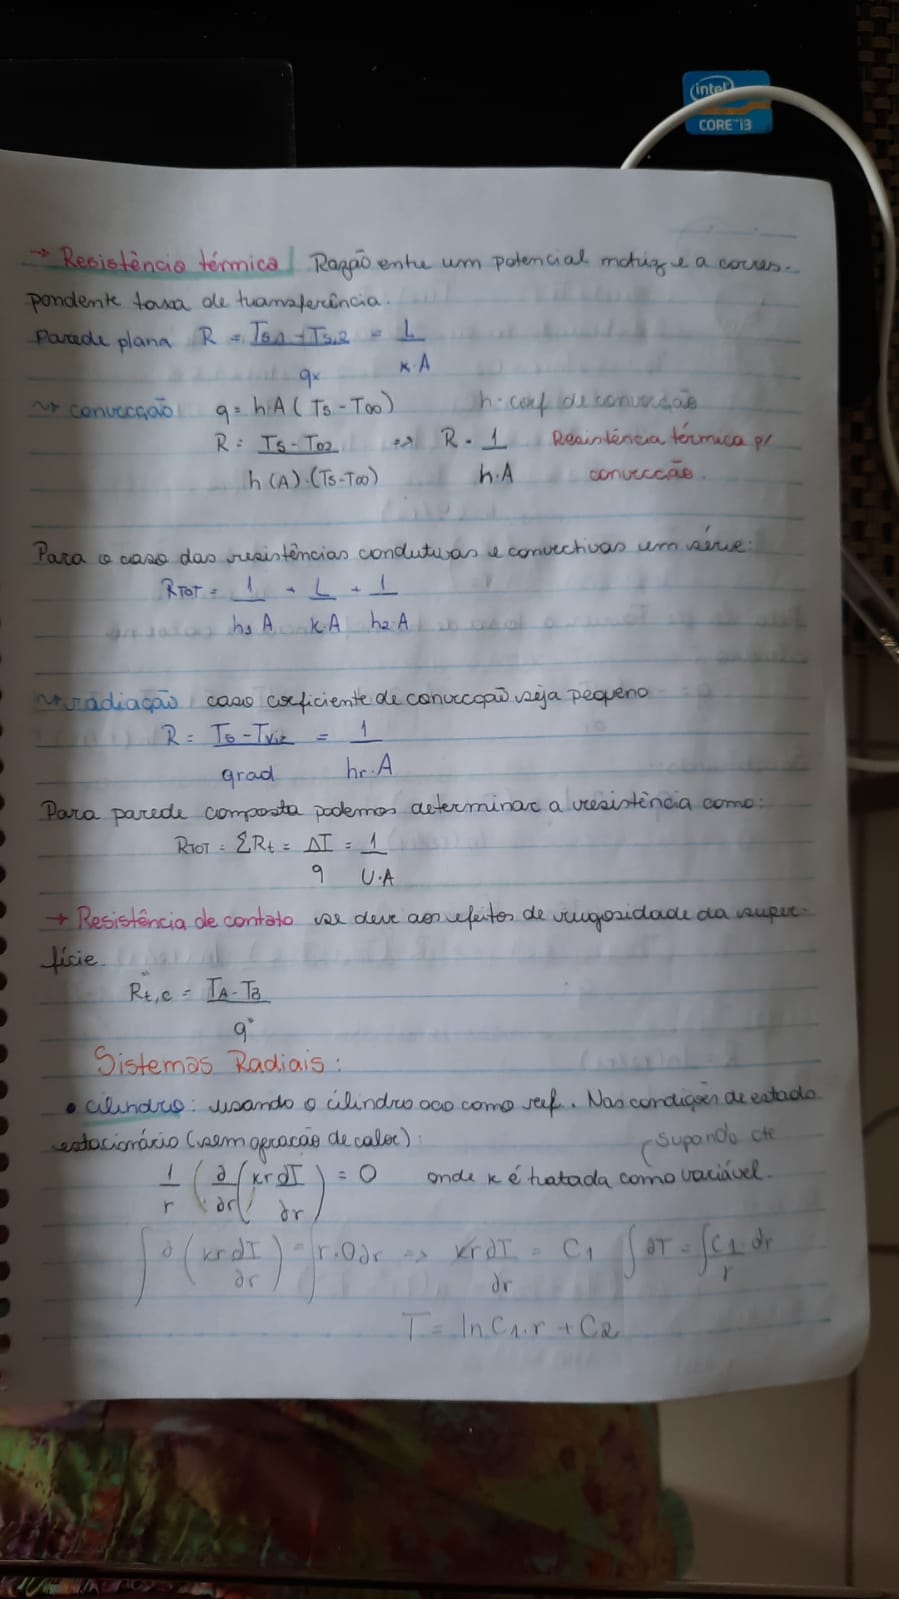 intel
CORE i3
→ Resistência térmica Razão entre um potencial motriz e a corres-
pondente taxa de transferência.
Parede plana R = Ts,1 - Ts,2 / qx = L / k.A
convecção q = h.A (Ts - T∞) h - coef de convecção
R = Ts - T∞ / h(A).(Ts-T∞) => R = 1 / h.A Resistência térmica p/
convecção.
Para o caso das resistências condutivas e convectivas em série:
RTOT = 1 / h1 A + L / k.A + 1 / h2.A
radiação caso coeficiente de convecção seja pequeno
R = Ts - Tviz / qrad = 1 / hr.A
Para parede composta podemos determinar a resistência como:
RTOT = ΣRt = ΔT / q = 1 / U.A
→ Resistência de contato se deve aos efeitos de rugosidade da super-
fície.
R"t,c = TA - TB / q"
Sistemas Radiais:
• cilindro: usando o cilindro oco como ref. Nas condições de estado
estacionário (sem geração de calor): supondo cte
1/r (∂/∂r (kr∂T/∂r) = 0 onde k é tratada como variável.
∫∂(kr∂T/∂r) = ∫r.0∂r => kr∂T/∂r = C1 ∫∂T = ∫C1/r dr
T = ln C1.r + C2